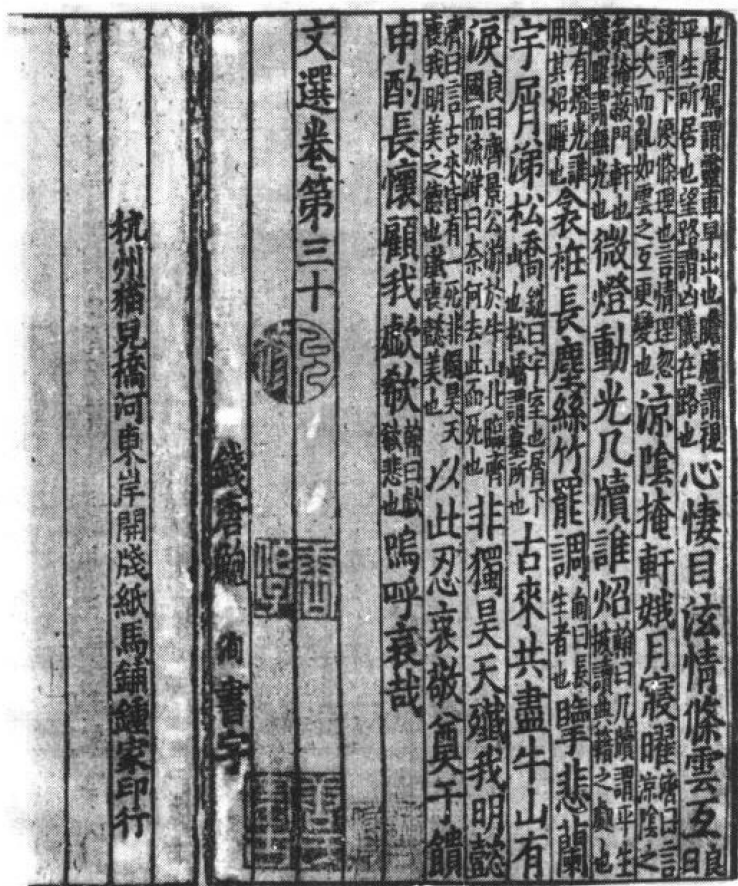 也晨駕謂靈車早出也瞻廬謂視
平生所居也望路謂凶儀在路也
心悽目泫情條雲互
良曰
泫謂下淚條理也言情理忽
失次而亂如雲之互更變也
涼陰掩軒娥月寢曜
濟曰言
涼陰之
氣掩蔽門軒也
寢曜謂無光也
微燈動光几牘誰炤
翰曰几牘謂平生
披讀典籍之類也
雖有燈光誰
用其炤曜也
衾衽長塵絲竹罷調
向曰長
生者也
擥悲蘭
宇屑涕松嶠
銑曰宇室也屑下
山也松嶠謂墓所也
古來共盡牛山有
淚
良曰齊景公游於牛山北臨齊
國而流涕曰奈何去此而死也
非獨昊天殲我明懿
濟曰言古來皆有一死非獨昊天
喪我明美之德也殲喪懿美也
以此忍哀敬奠于饋
申酌長懷顧我歔欷
翰曰歔
欷悲也
嗚呼哀哉
文選卷第三十
錢唐鮑洵書字
杭州猫兒橋河東岸開牋紙馬鋪鍾家印行